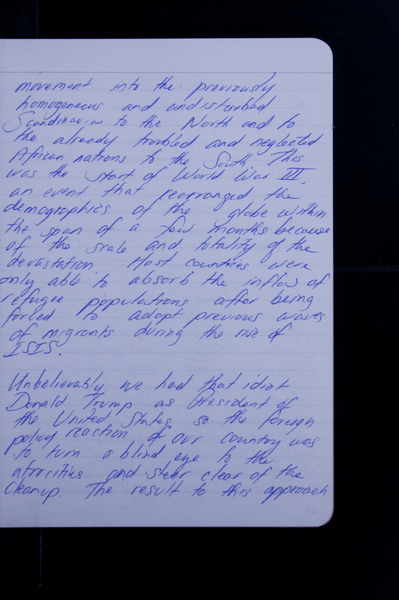 movement into the previously
homogeneous and undisturbed
Scandinavia to the North and to
the already troubled and neglected
African nations to the South. This
was the start of World War III,
an event that rearranged the
demographics of the globe within
the span of a few months because
of the scale and totality of the
devastation. Host countries were
only able to absorb the inflow of
refugee populations after being
forced to adopt previous waves
of migrants during the rise of
ISIS.
Unbelievably we had that idiot
Donald Trump as President of
the United States, so the foreign
policy reaction of our country was
to turn a blind eye to the
atrocities and steer clear of the
cleanup. The result to this approach